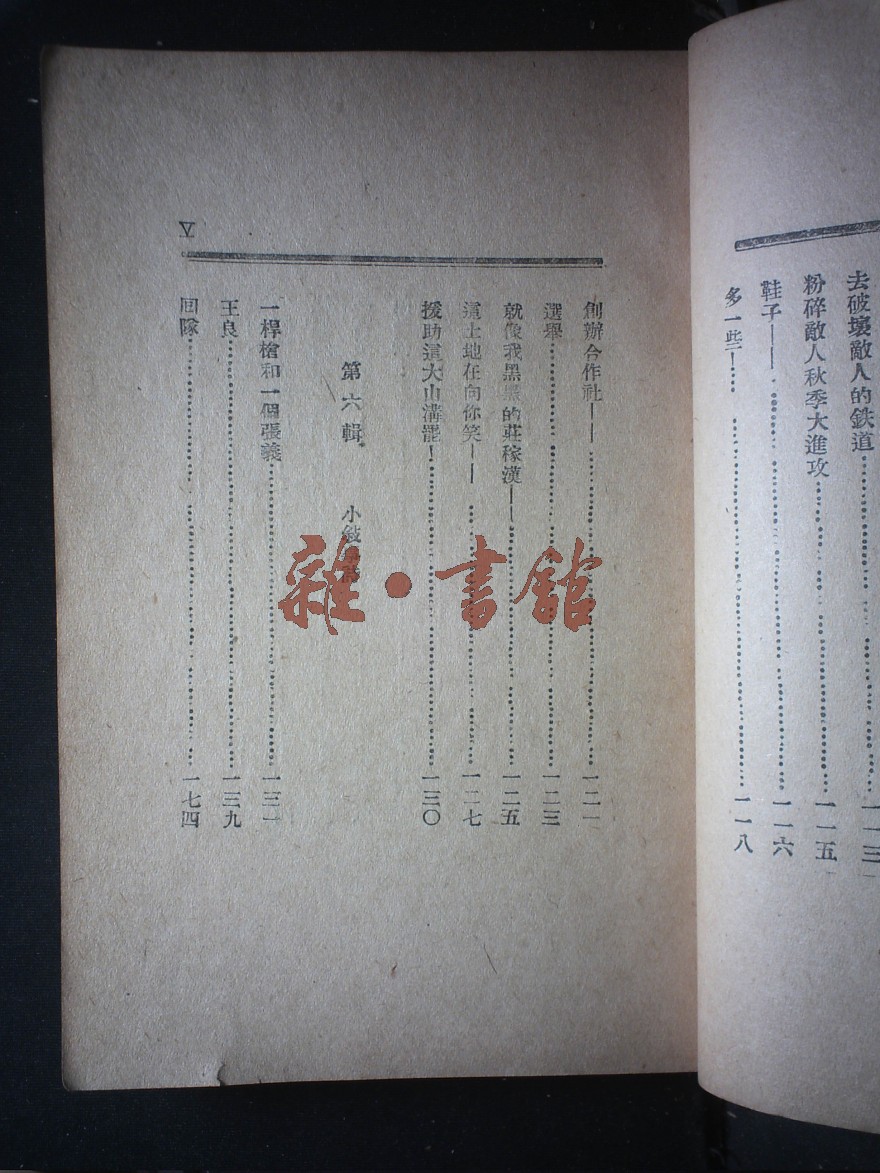 去破壞敵人的鉄道……一一三
粉碎敵人秋季大進攻……一一五
鞋子——……一一六
多一些！……一一八
V
創辦合作社——……一二一
選舉……一二三
就像我黑黑的莊稼漢——……一二五
這土地在向你笑——……一二七
援助這大山溝罷！……一三〇
第六輯　小敍事詩
一桿槍和一個張義……一三一
王良……一三九
回隊……一七四
雜·書館